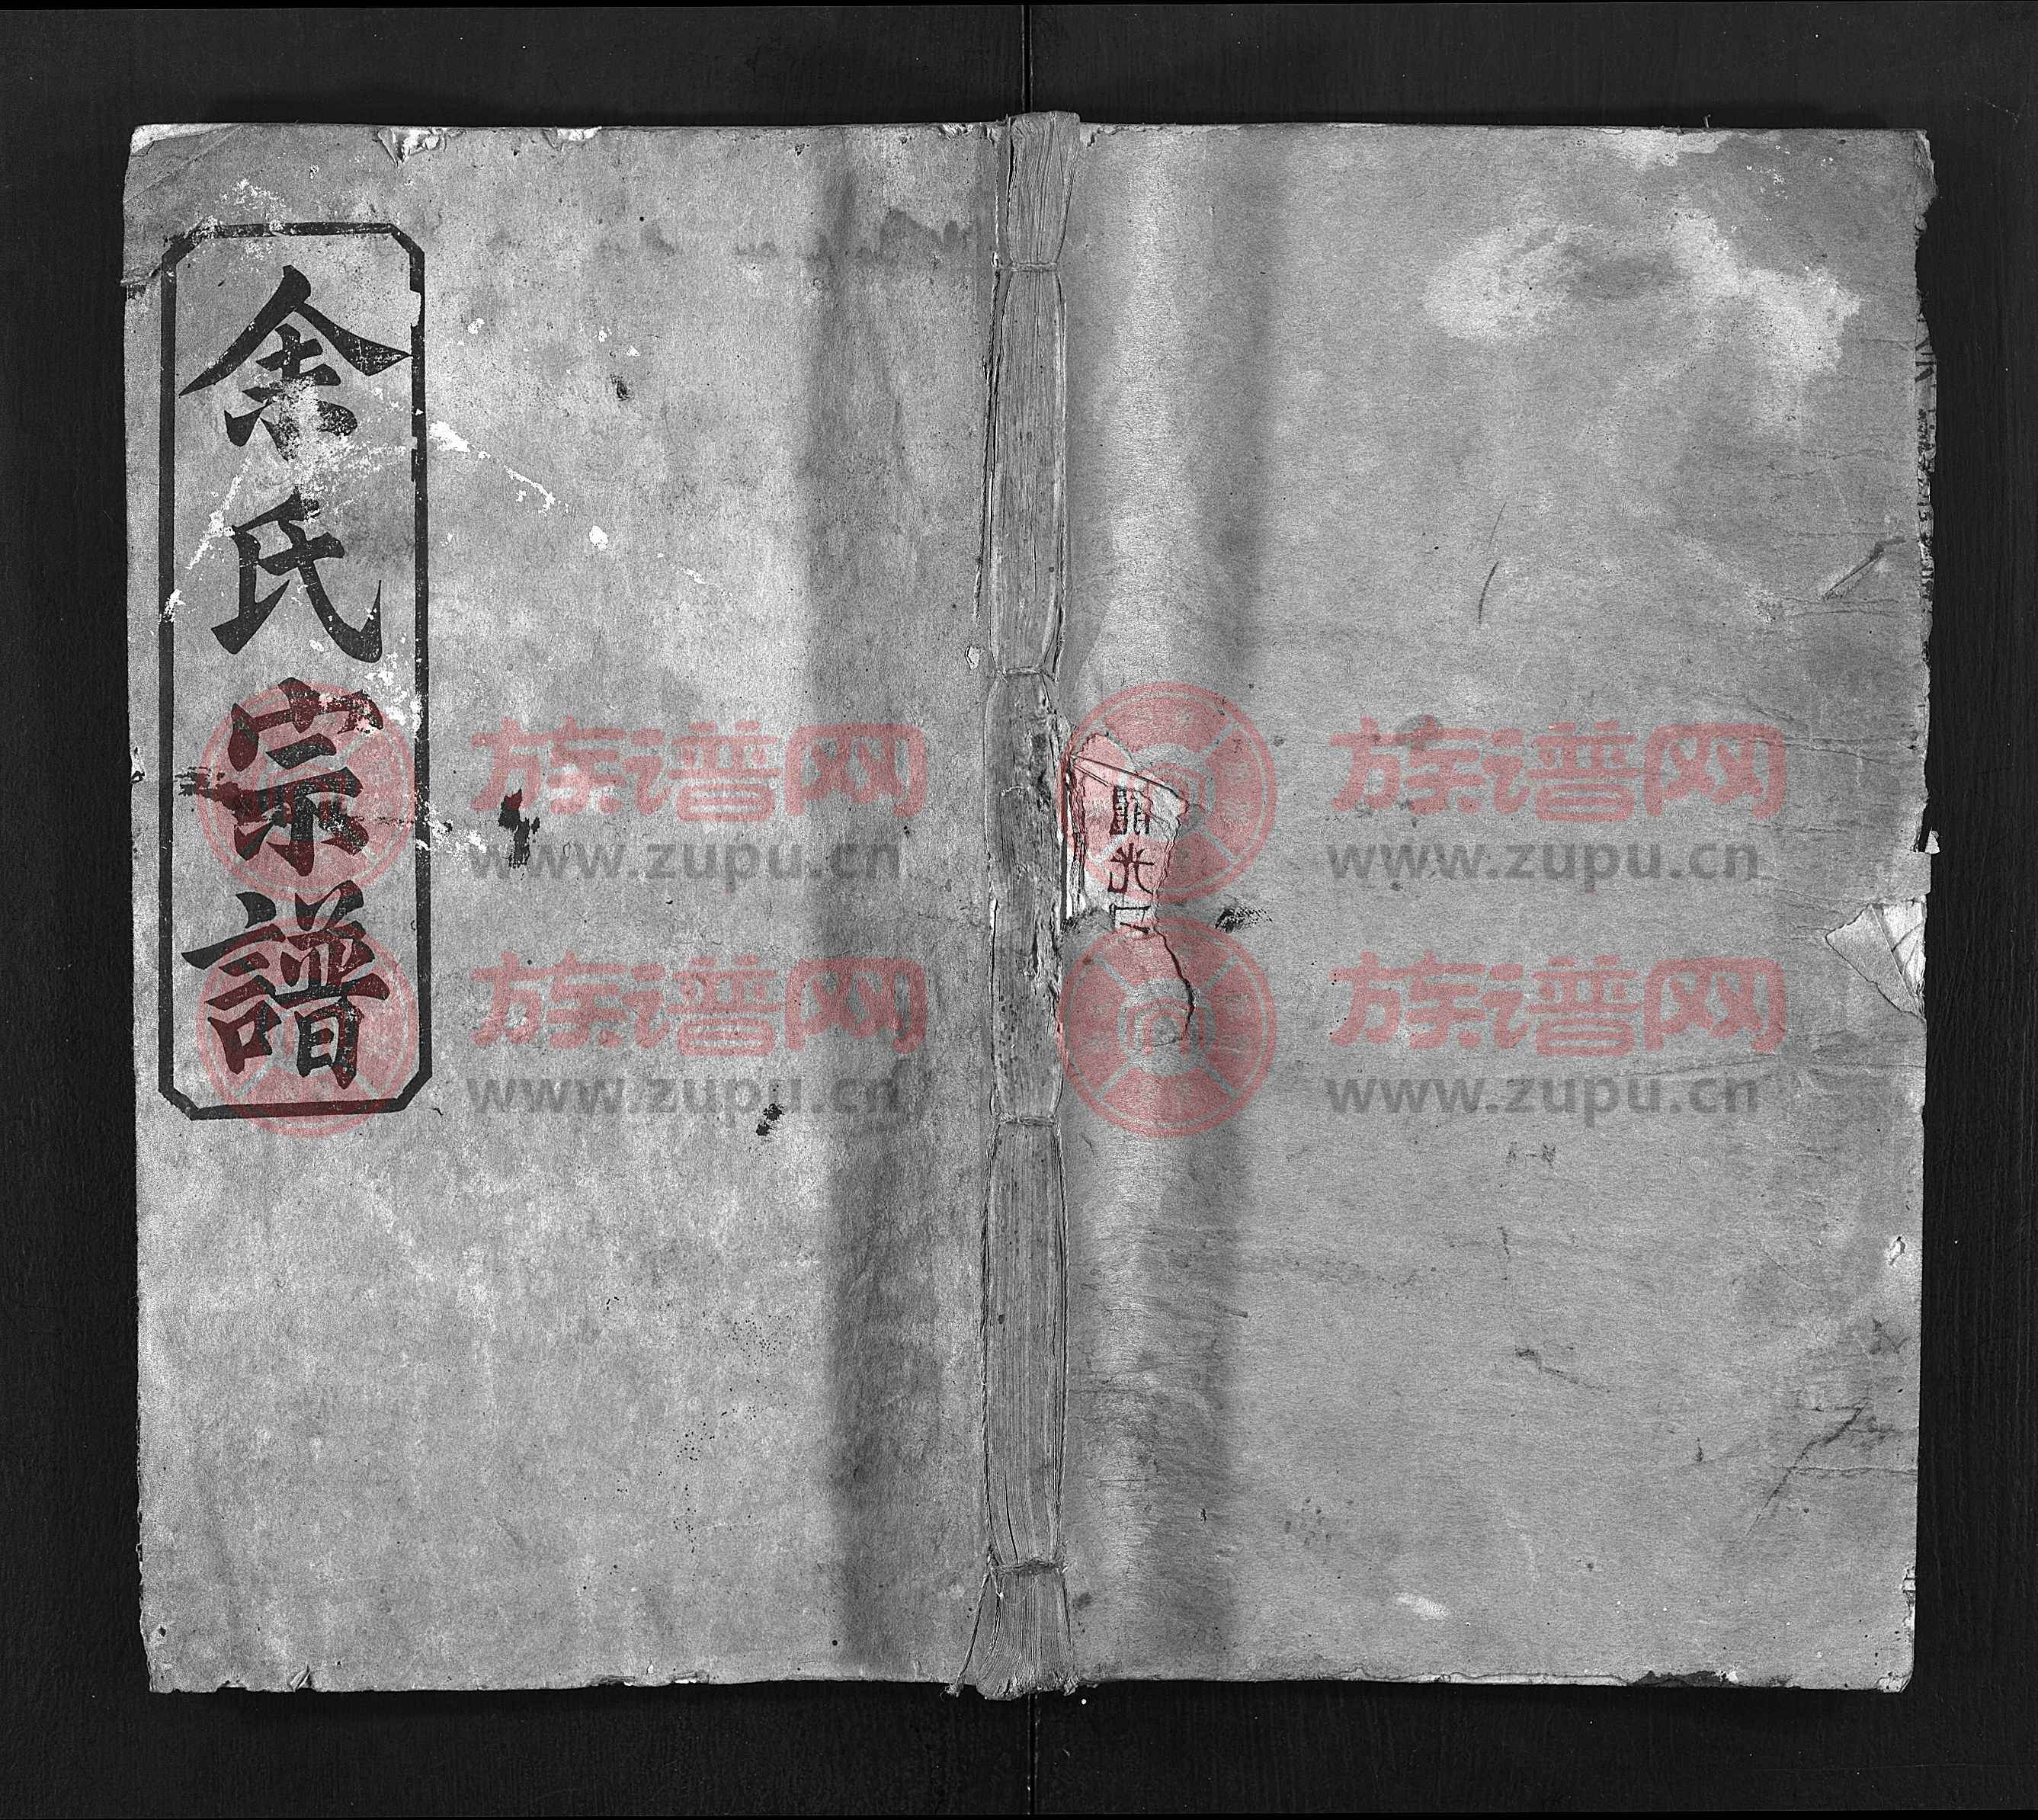 余氏宗譜
族谱网
www.zupu.cn
族谱网
www.zupu.cn
族谱网
www.zupu.cn
族谱网
www.zupu.cn
光